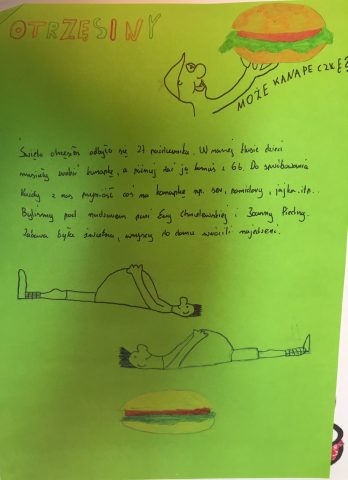 OTRZĘSINY
MOŻE KANAPECZKĘ?
Święto otrzęsin odbyło się 27 października. W naszej klasie dzieci
musiały zrobić kanapkę, a później dać ją komuś z 6b. Do spróbowania
Każdy z nas przyniósł coś na kanapkę np. ser, pomidory, jajka itp..
Byliśmy pod nadzorem pani Ewy Chmielewskiej i Joanny
Zabawa była świetna, wszyscy do domu wrócili najedzeni.